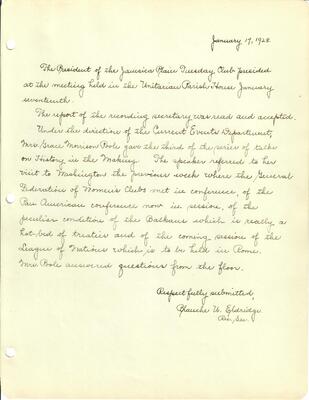 January 17, 1928
The President of the Jamaica Plain Tuesday Club presided
at the meeting held in the Unitarian Parish House January
seventeenth.
The report of the recording secretary was read and accepted.
Under the direction of the Current Events Department,
Mrs. Grace Morrison Poole gave the third of the series of talks
on History in the Making. The speaker referred to her
visit to Washington the previous week where the General
Federation of Women's Clubs met in conference, of the
Pan American conference now in session, of the
peculiar condition of the Balkans which is really a
hot-bed of treaties and of the coming session of the
League of Nations which is to be held in Rome.
Mrs. Poole answered questions from the floor.
Respectfully submitted,
Blanche U. Eldridge
Rec. Sec.